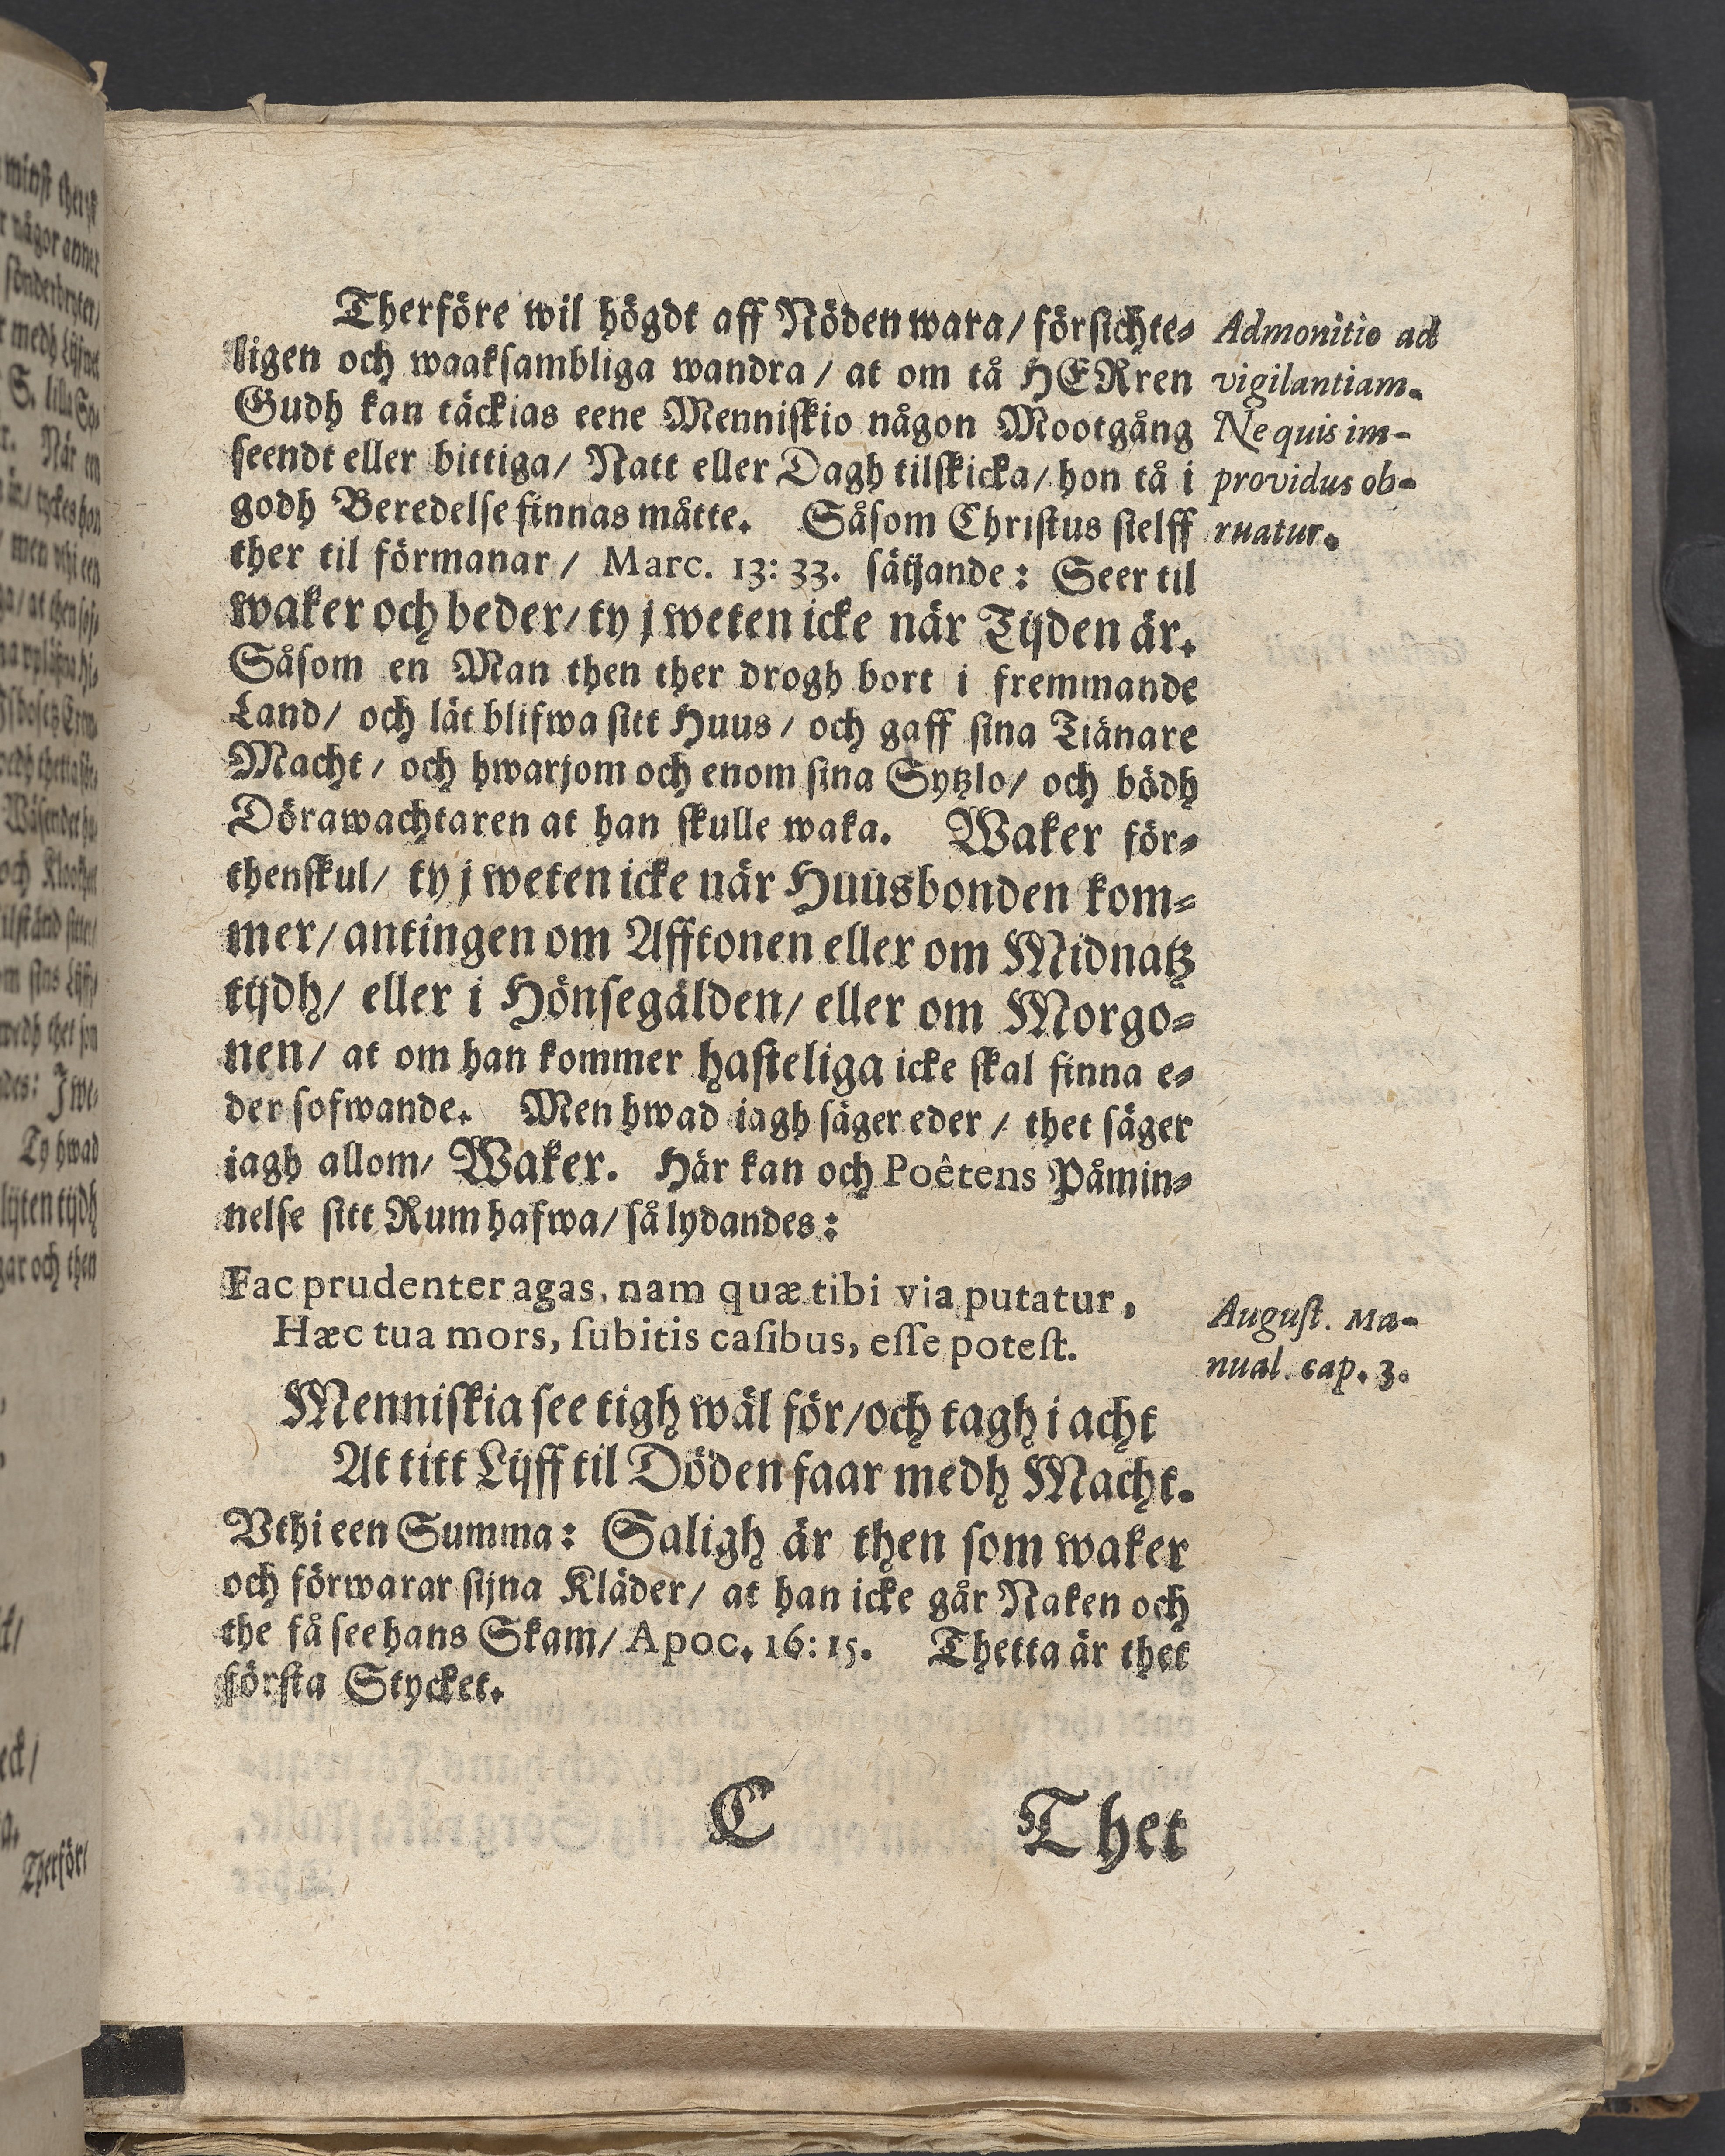 Therföre wil högdt aff Nöden wara/ försichte-
ligen och waaksambliga wandra / at om tå HERren
Gudh kan täckias eene Menniskio någon Mootgång
seendt eller bittiga/ Natt eller Dagh tilskicka/ hon tå i
godh Beredelse finnas måtte. Såsom Christus sielff
ther til förmanar / Marc. 13: 33. sätjande: Seer til
waker och beder/ ty j weten icke när Tijden är.
Såsom en Man then ther drogh bort i fremmande
Land/ och lät blifwa sitt Huus / och gaff sina Tiänare
Macht / och hwarjom och enom sina Sytzlo/ och bödh
Dörawachtaren at han skulle waka. Waker för-
thenskul/ ty j weten icke när Huusbonden kom-
mer/ antingen om Afftonen eller om Midnatz
tijdh/ eller i Hönsegälden/ eller om Morgo-
nen/ at om han kommer hasteliga icke skal finna e-
der sofwande. Men hwad iagh säger eder / thet säger
iagh allom/ Waker. Här kan och Poêtens Påmin-
nelse sitt Rum hafwa/ så lydandes:
Fac prudenter agas, nam quæ tibi via putatur,
Hæc tua mors, ſubitis caſibus, eſſe poteſt.
Menniskia see tigh wäl för/och tagh i acht
At titt Lijff til Döden faar medh Macht.
Vthi een Summa: Saligh är then som waker
och förwarar sijna Kläder/ at han icke går Naken och
the få see hans Skam/ Apoc. 16: 15. Thetta är thet
första Stycket.
C Thet
Admonitio ad
vigilantiam.
Ne quis im-
providus ob-
ruatur.
Auguſt. Ma-
nual. cap. 3.